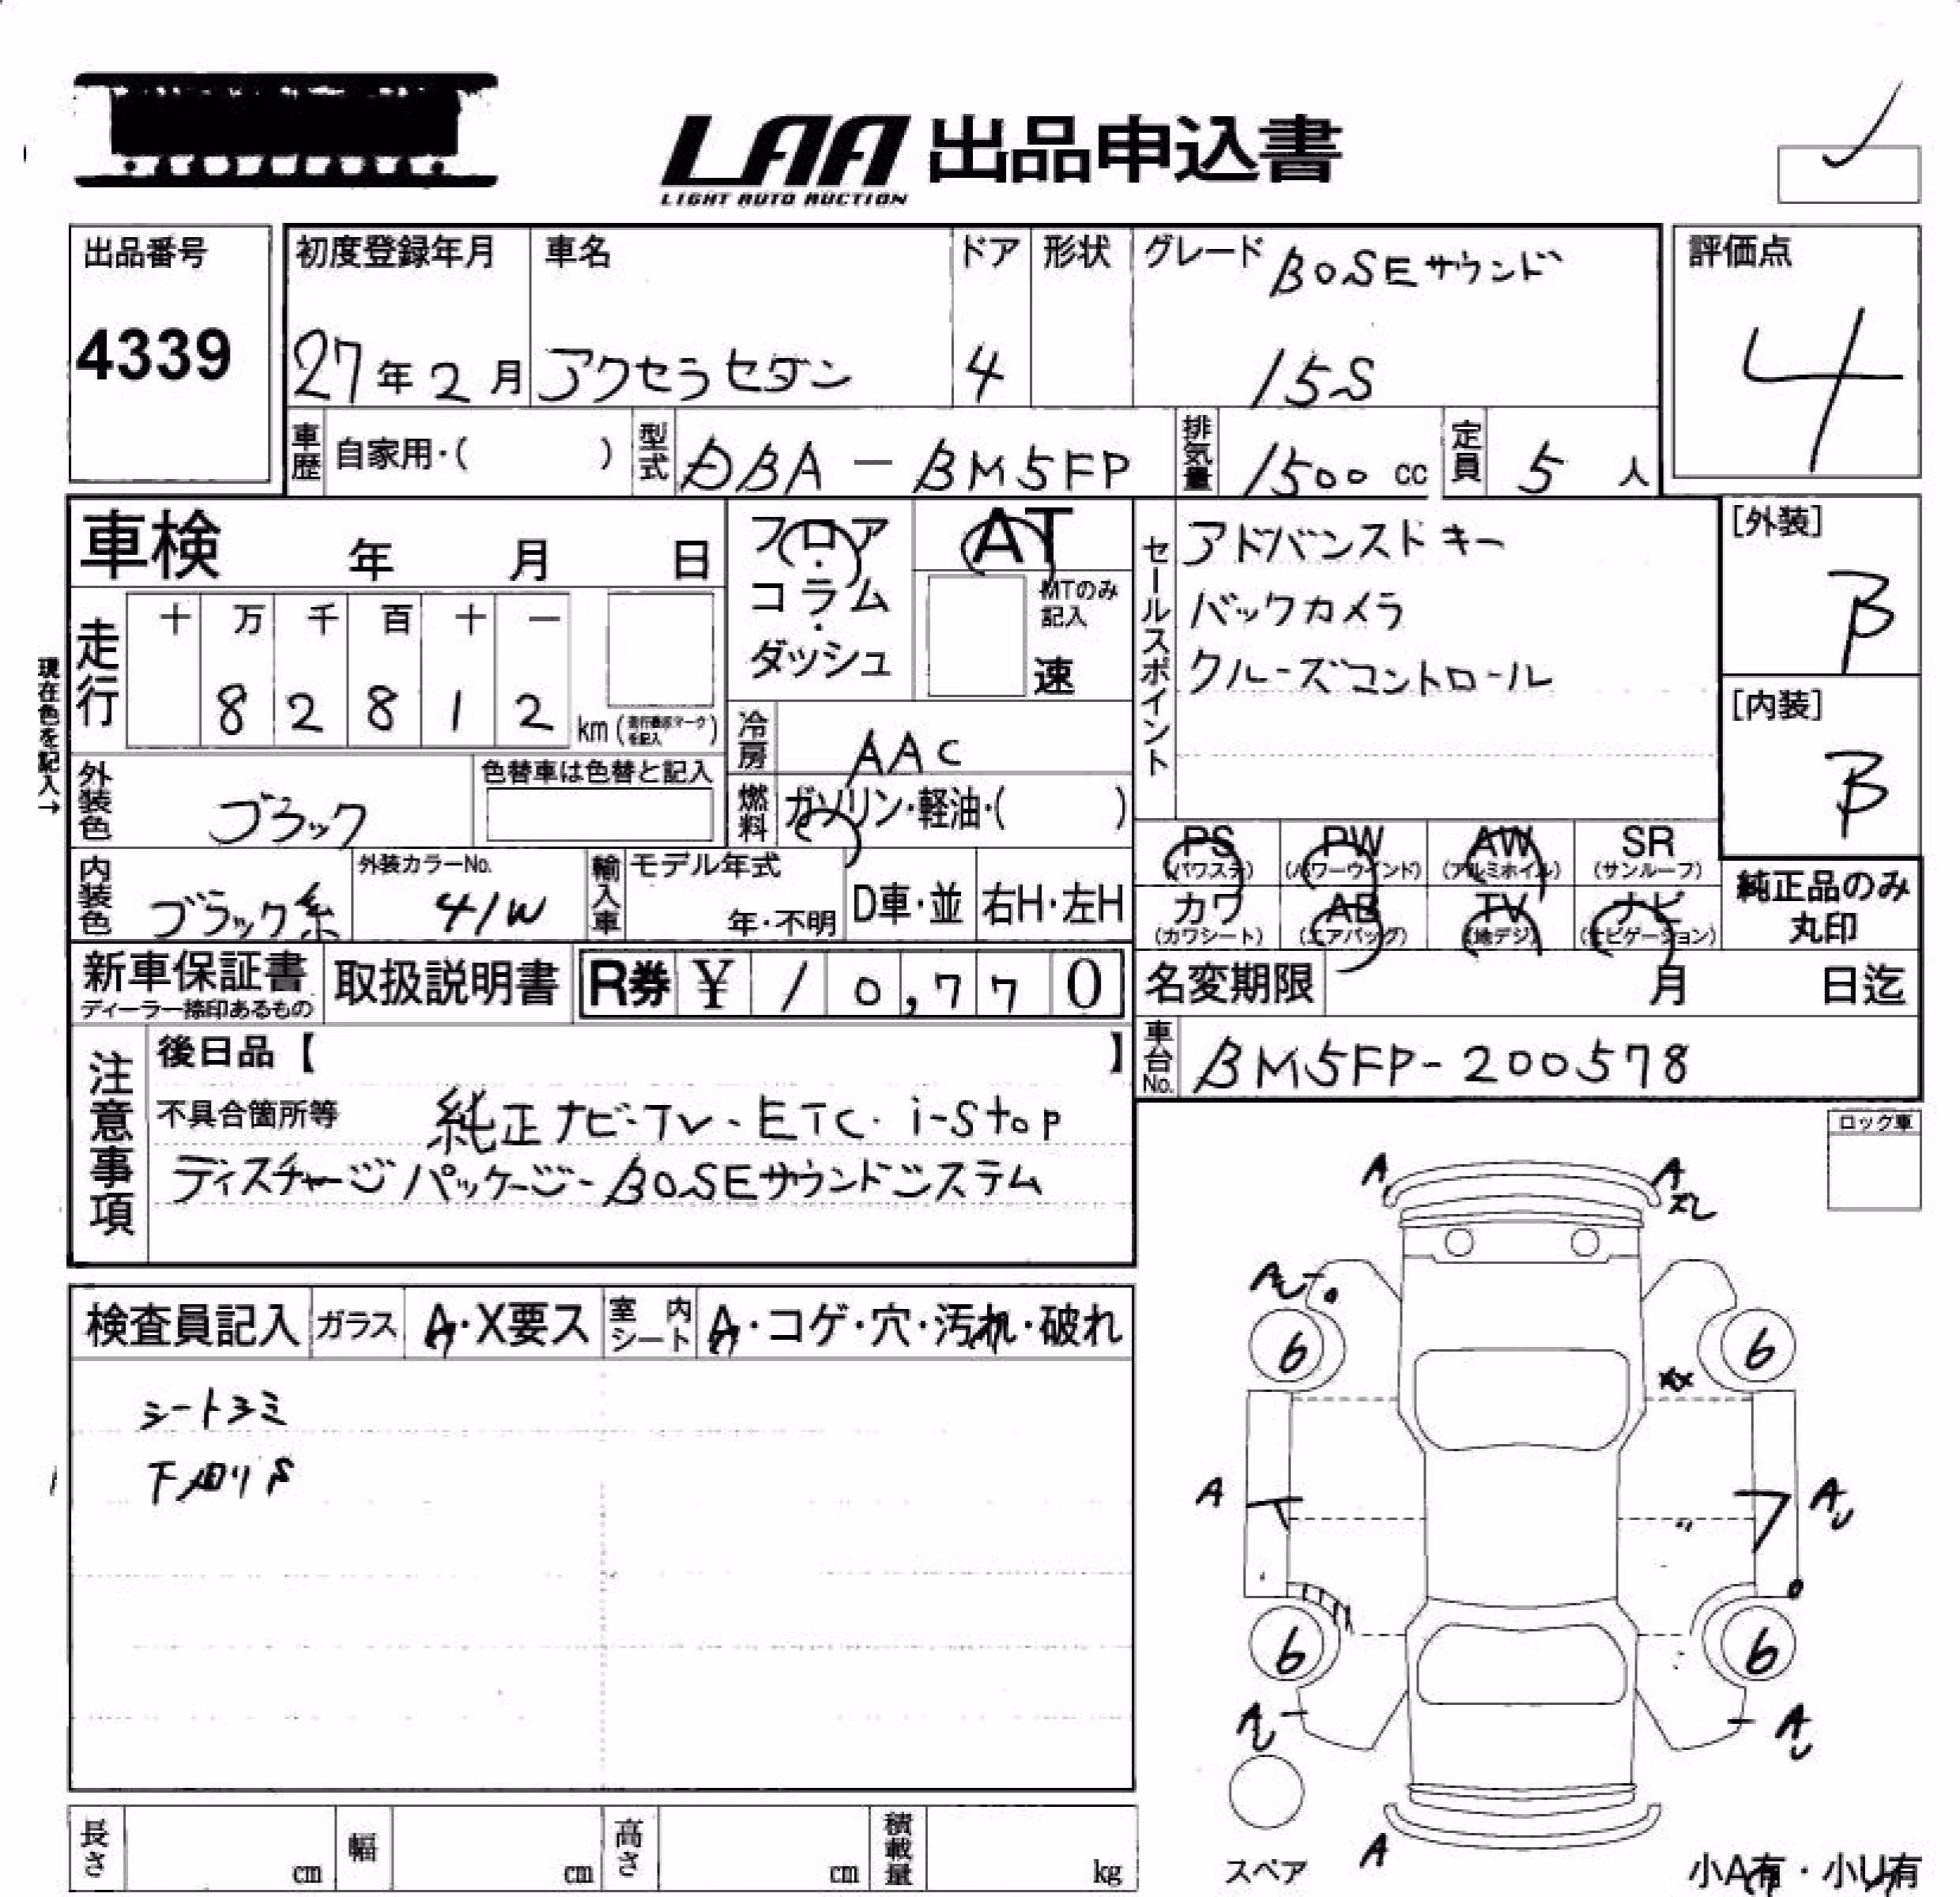 LAA 出品申込書
LIGHT AUTO AUCTION
出品番号
4339
初度登録年月
27年2月
車名
アクセラセダン
ドア
4
形状
グレード BOSEサウンド
15S
評価点
4
車歴 自家用・( )
型式 DBA-BM5FP
排気量 1500 cc
定員 5 人
車検 年 月 日
フロア・
コラム・
ダッシュ
AT
MTのみ記入
速
セールスポイント
アドバンストキー
バックカメラ
クルーズコントロール
[外装]
B
[内装]
B
現在色を記入→
走行
十 万 千 百 十 一
8 2 8 1 2 km
冷房 AAC
外装色 ブラック
色替車は色替と記入
燃料 ガソリン・軽油・( )
PS (パワステ)
PW (パワーウインド)
AW (アルミホイル)
SR (サンルーフ)
内装色 ブラック系
外装カラーNo. 41W
輸入車
モデル年式
年・不明
D車・並
右H・左H
カワ (カワシート)
AB (エアバッグ)
TV (地デジ)
ナビ (ナビゲーション)
純正品のみ
丸印
新車保証書
ディーラー捺印あるもの
取扱説明書
R券 ¥ 10,770
名変期限 月 日迄
車台No. BM5FP-200578
注意事項
後日品【 】
不具合箇所等 純正ナビ・TV・ETC・i-stop
ディスチャージパッケージ・BOSEサウンドシステム
ロック車
検査員記入
ガラス A・X要ス
室内シート A・コゲ・穴・汚れ・破れ
シートシミ
下回りS
A A
6 6
A A
6 6
A
スペア
小A有・小U有
長さ cm
幅 cm
高さ cm
積載量 kg